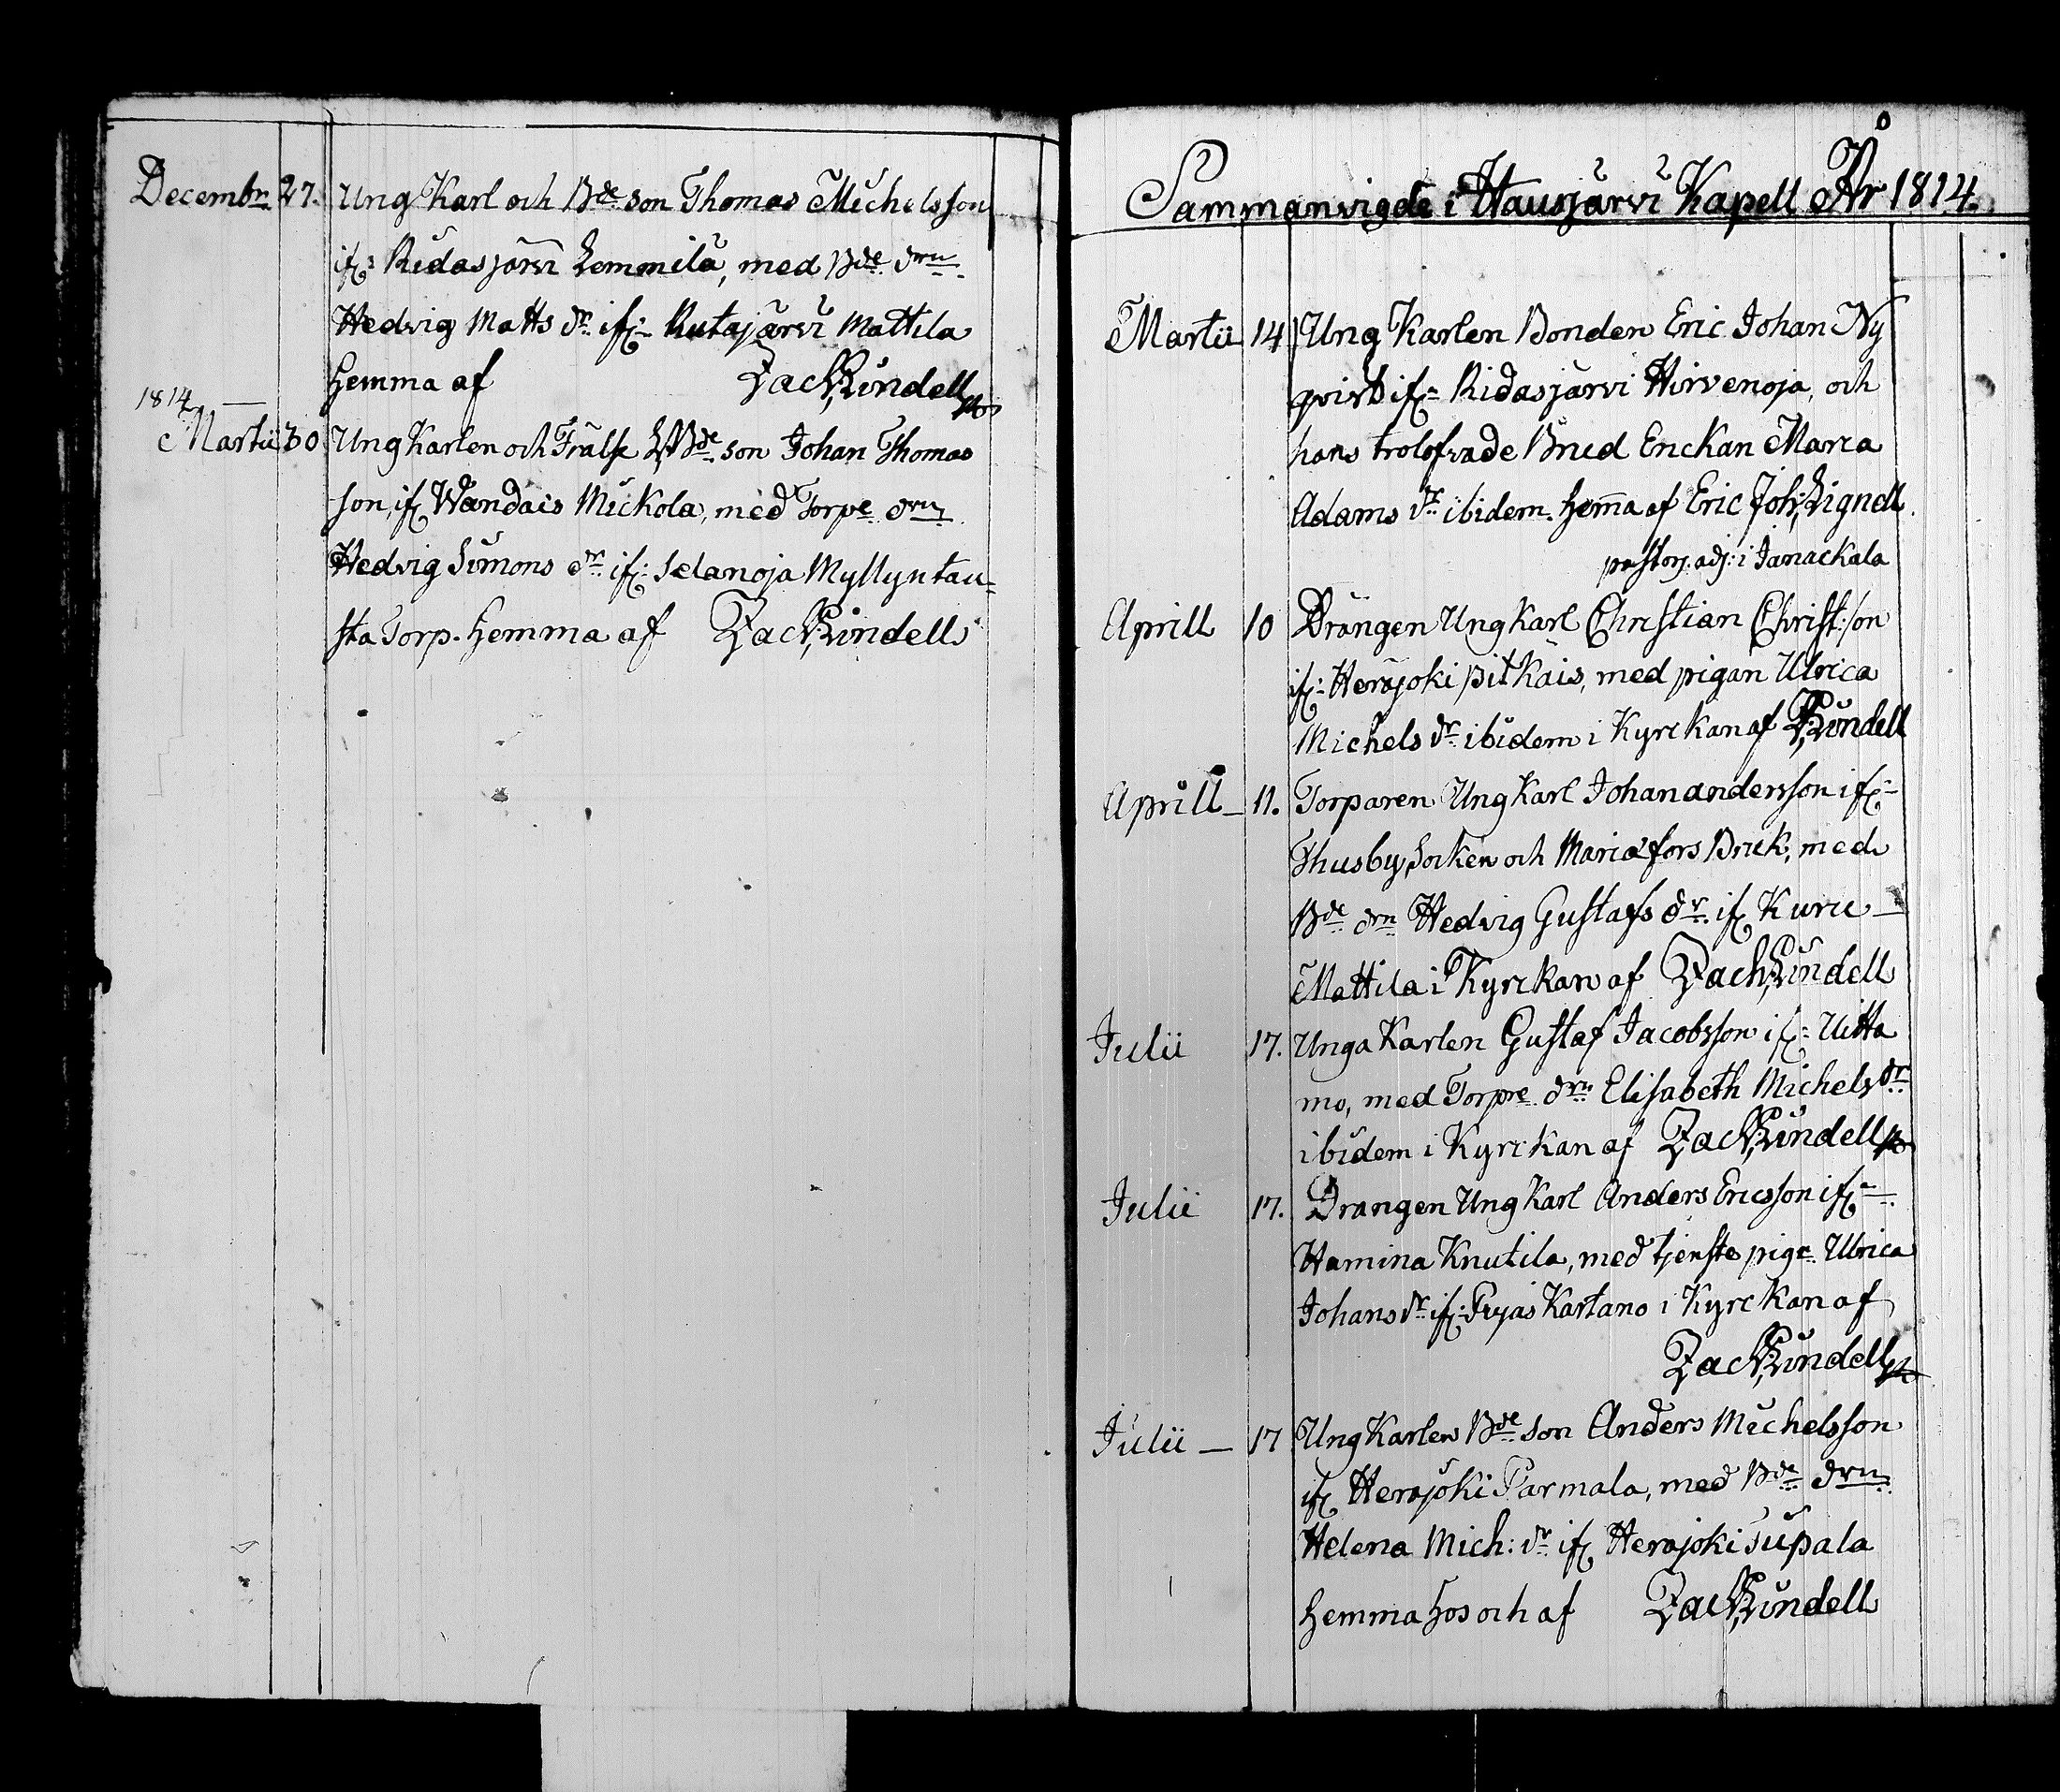 Decembr 27. Ung Karl och Bde son Thomas Michelsson
if: Ridasjärvi Lemmilä, med Bde drn
Hedvig Matts dr if: Rutajärvi Mattila
hemma af Zach: Lindell
1814 —
Martii 30 Ung Karlen och Frälse Bde son Johan Thomas
son, if Wandais Mickola, med Torpe drn
Hedvig Simons dr if: Selanoja Myllyntau-
sta Torp. hemma af Zach: Lindell
Sammanvigde i Hausjärvi Kapell År 1814.
Martii 14 Ung Karlen Bonden Eric Johan Ny
qvist if= Ridasjärvi Hirvenoja, och
hans trolofvade Brud Enckan Maria
Adams dr ibidem. hem̄a af Eric Joh: Lignell
pastors. adj: i Janackala
Aprill 10 Drängen Ung Karl Christian Christ:son
if: Herajoki Pitkäis, med pigan Ulrica
Michels dr ibidem i Kyrckan af Z: Lindell
Aprill — 11. Torparen Ung Karl Johan andersson if=
Thusby Socken och Mariæfors Bruk, med
Bde drn Hedvig Gustafs dr if Kuru —
Mattila i Kyrckan af Zach: Lindell
Julii 17. Unga Karlen Gustaf Jacobsson if= Uitta
mo, med Torpre drn Elisabeth Michels dr
ibidem i Kyrckan af Zach: Lindell
Julii 17. Drangen Ung Karl Anders Ericsson if=
Hamina Knutila, med tjenste pige Ulrica
Johans dr if: Ryas Kartano i Kyrckan af
Zach: Lindell
Julii — 17 Ung Karlen Bde son Anders Michelsson
if Herajoki Parmala, med Bde drn
Helena Mich: dr if Herajoki Supala
hemma hos och af Zach: Lindell